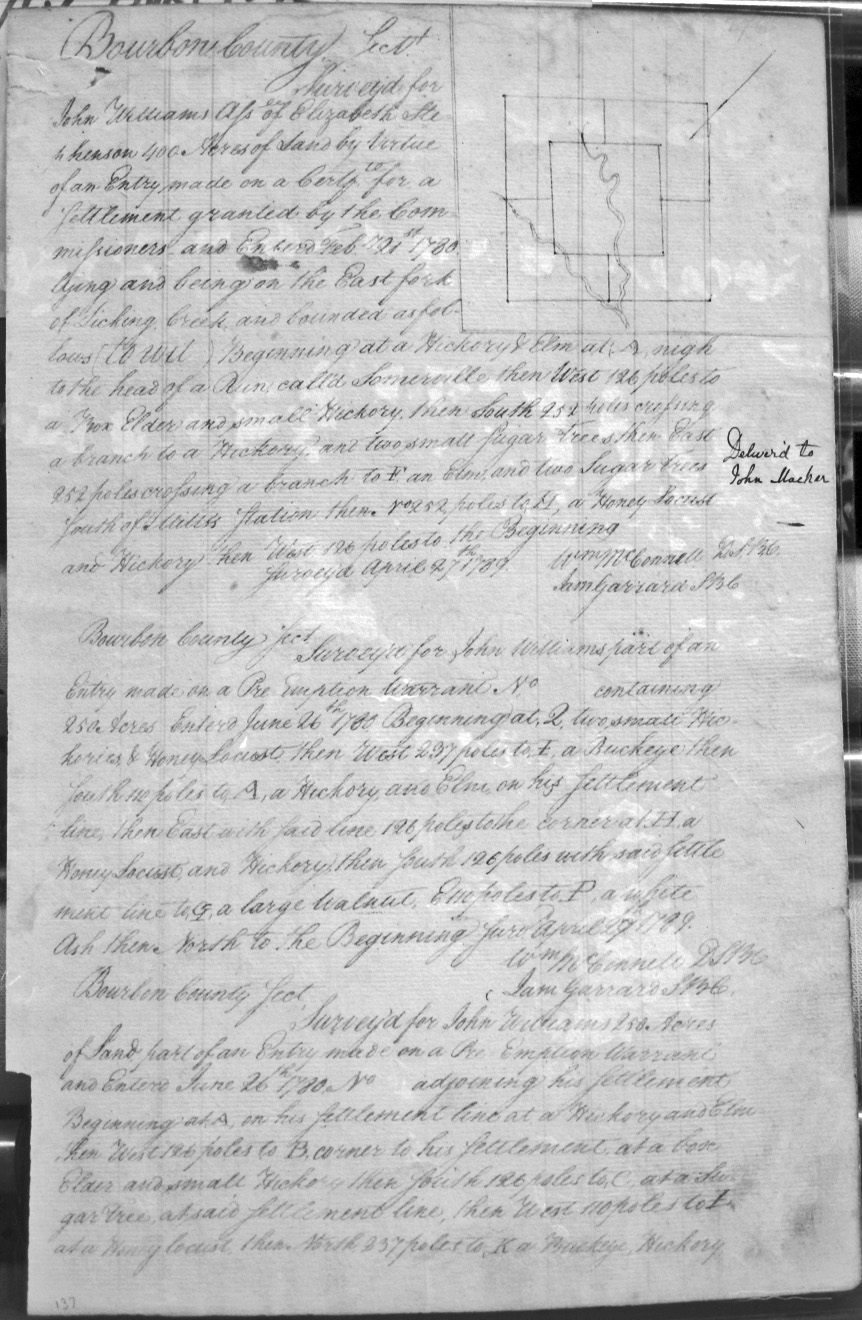 Bourbon County Sct
Survey'd for
John Williams Ass of Elizabeth Ste
phenson 400 Acres of Land by Virtue
of an Entry made on a Certf. to for a
settlement granted by the Com-
missioners and Enterd Feb 21st 1780
lying and being on the East fork
of Licking Creek and bounded as fol-
lows (to wit) Beginning at a Hickory & Elm at A, nigh
to the head of a Run call'd Somerville then West 126 poles to
a Box Elder and small Hickory, then South 252 poles crossing
a branch to a Hickory and two small Sugar Trees, then East
252 poles crossing a branch to F an Elm, and two Sugar trees
South of Station then No 252 poles to H, a Honey Locust
and Hickory then West 126 poles to the Beginning
Survey'd April 27th 1789. Wm McConnell D.S.B.C.
Jam Garrard S B C
Deliver'd to
John Macker
Bourbon County Sct
Survey'd for John Williams part of an
Entry made on a Pre Emption Warrant No containing
250 Acres Enterd June 26th 1780 Beginning at, Q, two small Hic-
kories, & Honey Locust, then West 237 poles to, I, a Buckeye then
South 110 poles to A, a Hickory and Elm, on his settlement
line, then East with said line 126 poles to the corner at H, a
Honey Locust, and Hickory, then South 126 poles with said settle
ment line to, G, a large Walnut, E 110 poles to, P, a white
Ash then North to the Beginning Surv'd April 27th 1789.
Wm McConnell D S B C
Jam Garrard S B C.
Bourbon County Sct
Survey'd for John Williams 250 Acres
of Land part of an Entry made on a Pre Emption Warrant
and Enterd June 26th 1780 No adjoining his settlement
Beginning at A, on his settlement line at a Hickory and Elm
then West 126 poles to B, corner to his settlement, at a box
Elder and small Hickory then South 126 poles to, C, at a Su-
gar tree, at said settlement line, then West 110 poles to L
at a Honey locust, then North 237 poles to, K a Buckeye, Hickory
137